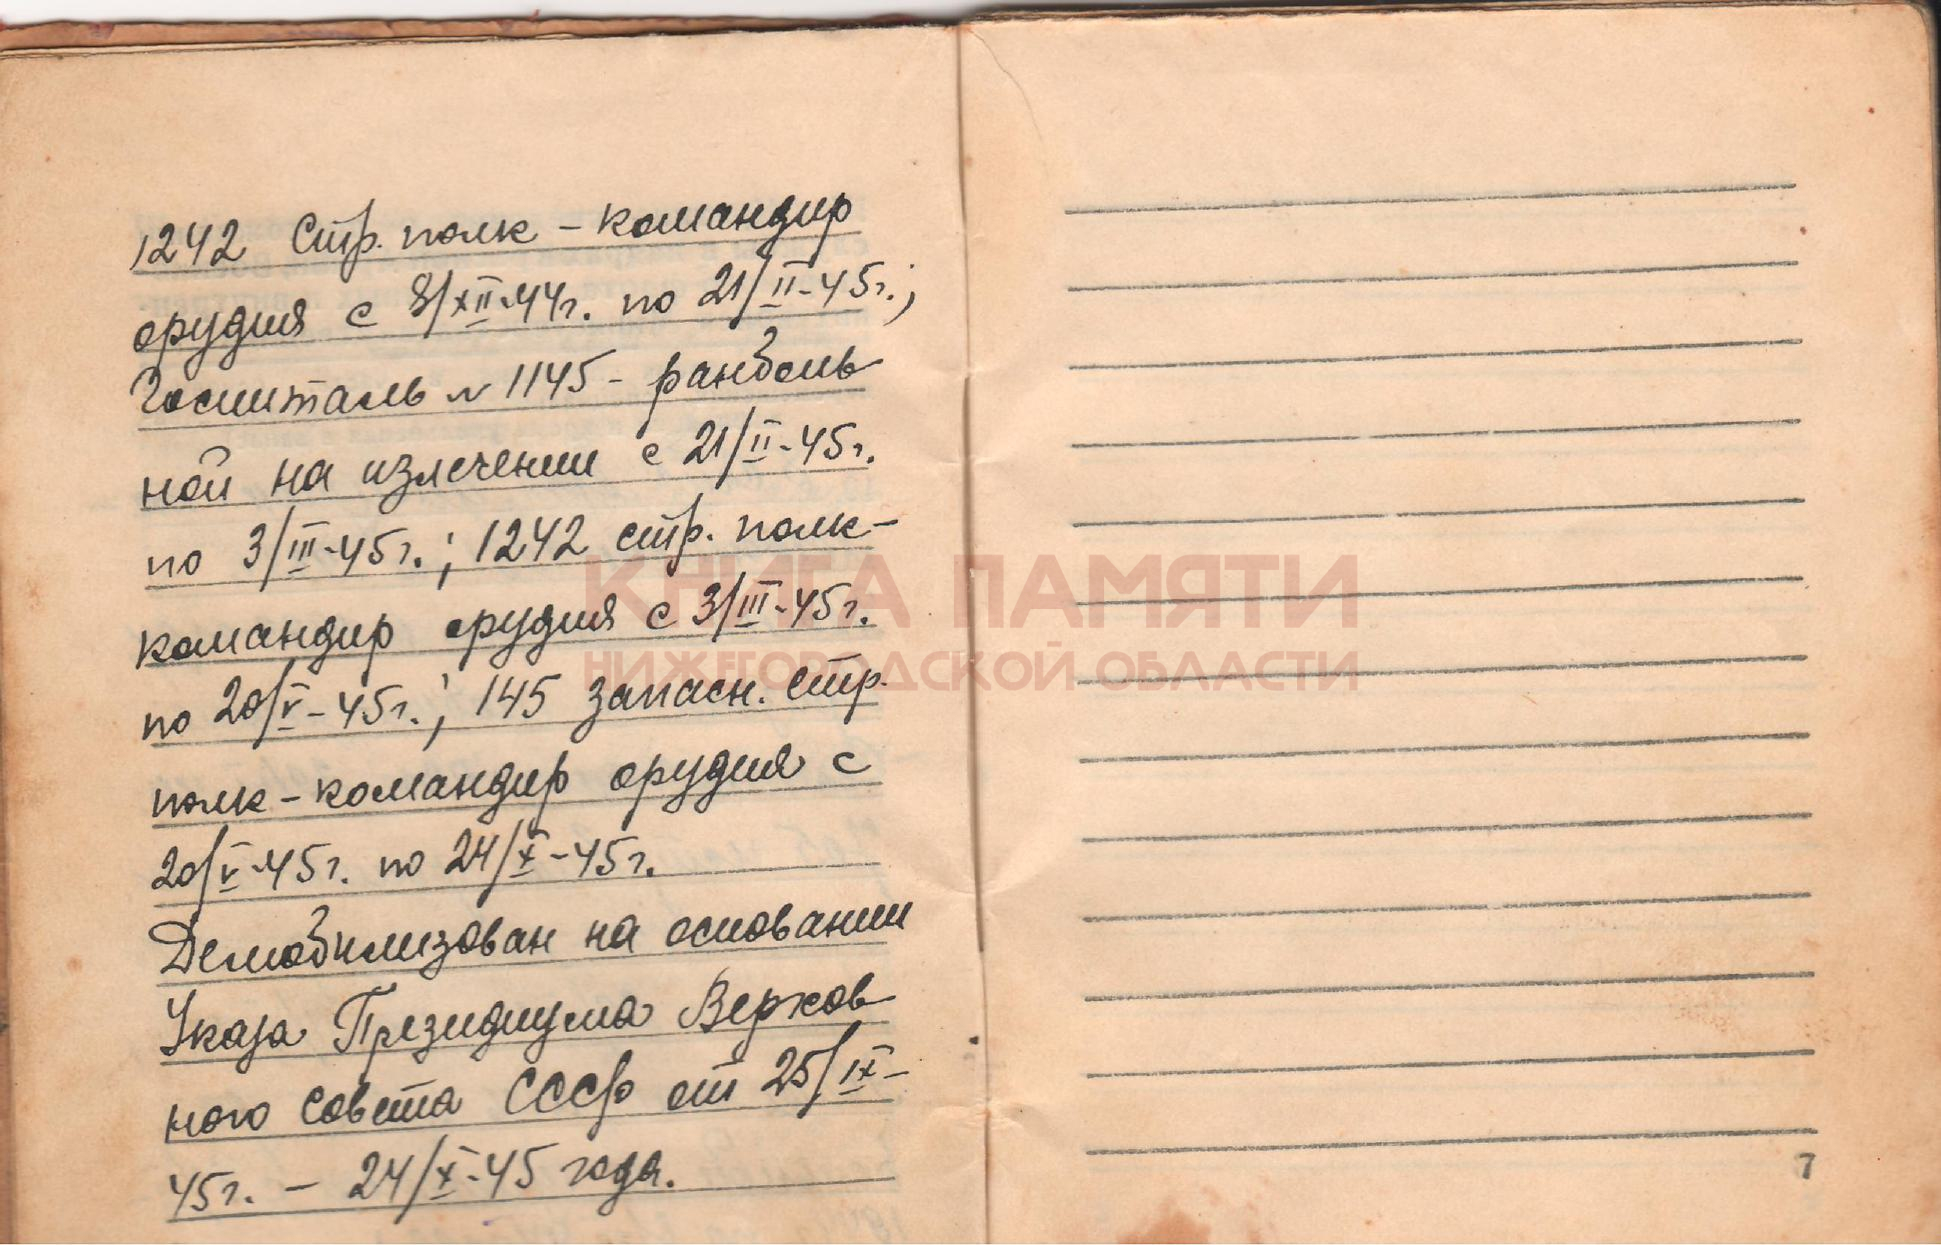 1242 Стр. полк – командир
орудия с 8/XII-44г. по 21/II-45г.;
Госпиталь N 1145 – ранболь
ной на излечении с 21/II-45г.
по 3/III-45г.; 1242 стр. полк –
КНИГА ПАМЯТИ
командир орудия с 3/III-45г.
НИЖЕГОРОДСКОЙ ОБЛАСТИ
по 20/V-45г.; 145 запасн. стр.
полк – командир орудия с
20/V-45г. по 24/X-45г.
Демобилизован на основании
Указа Президиума Верхов
ного Совета СССР от 25/IX-
45г. – 24/X-45 года.
7